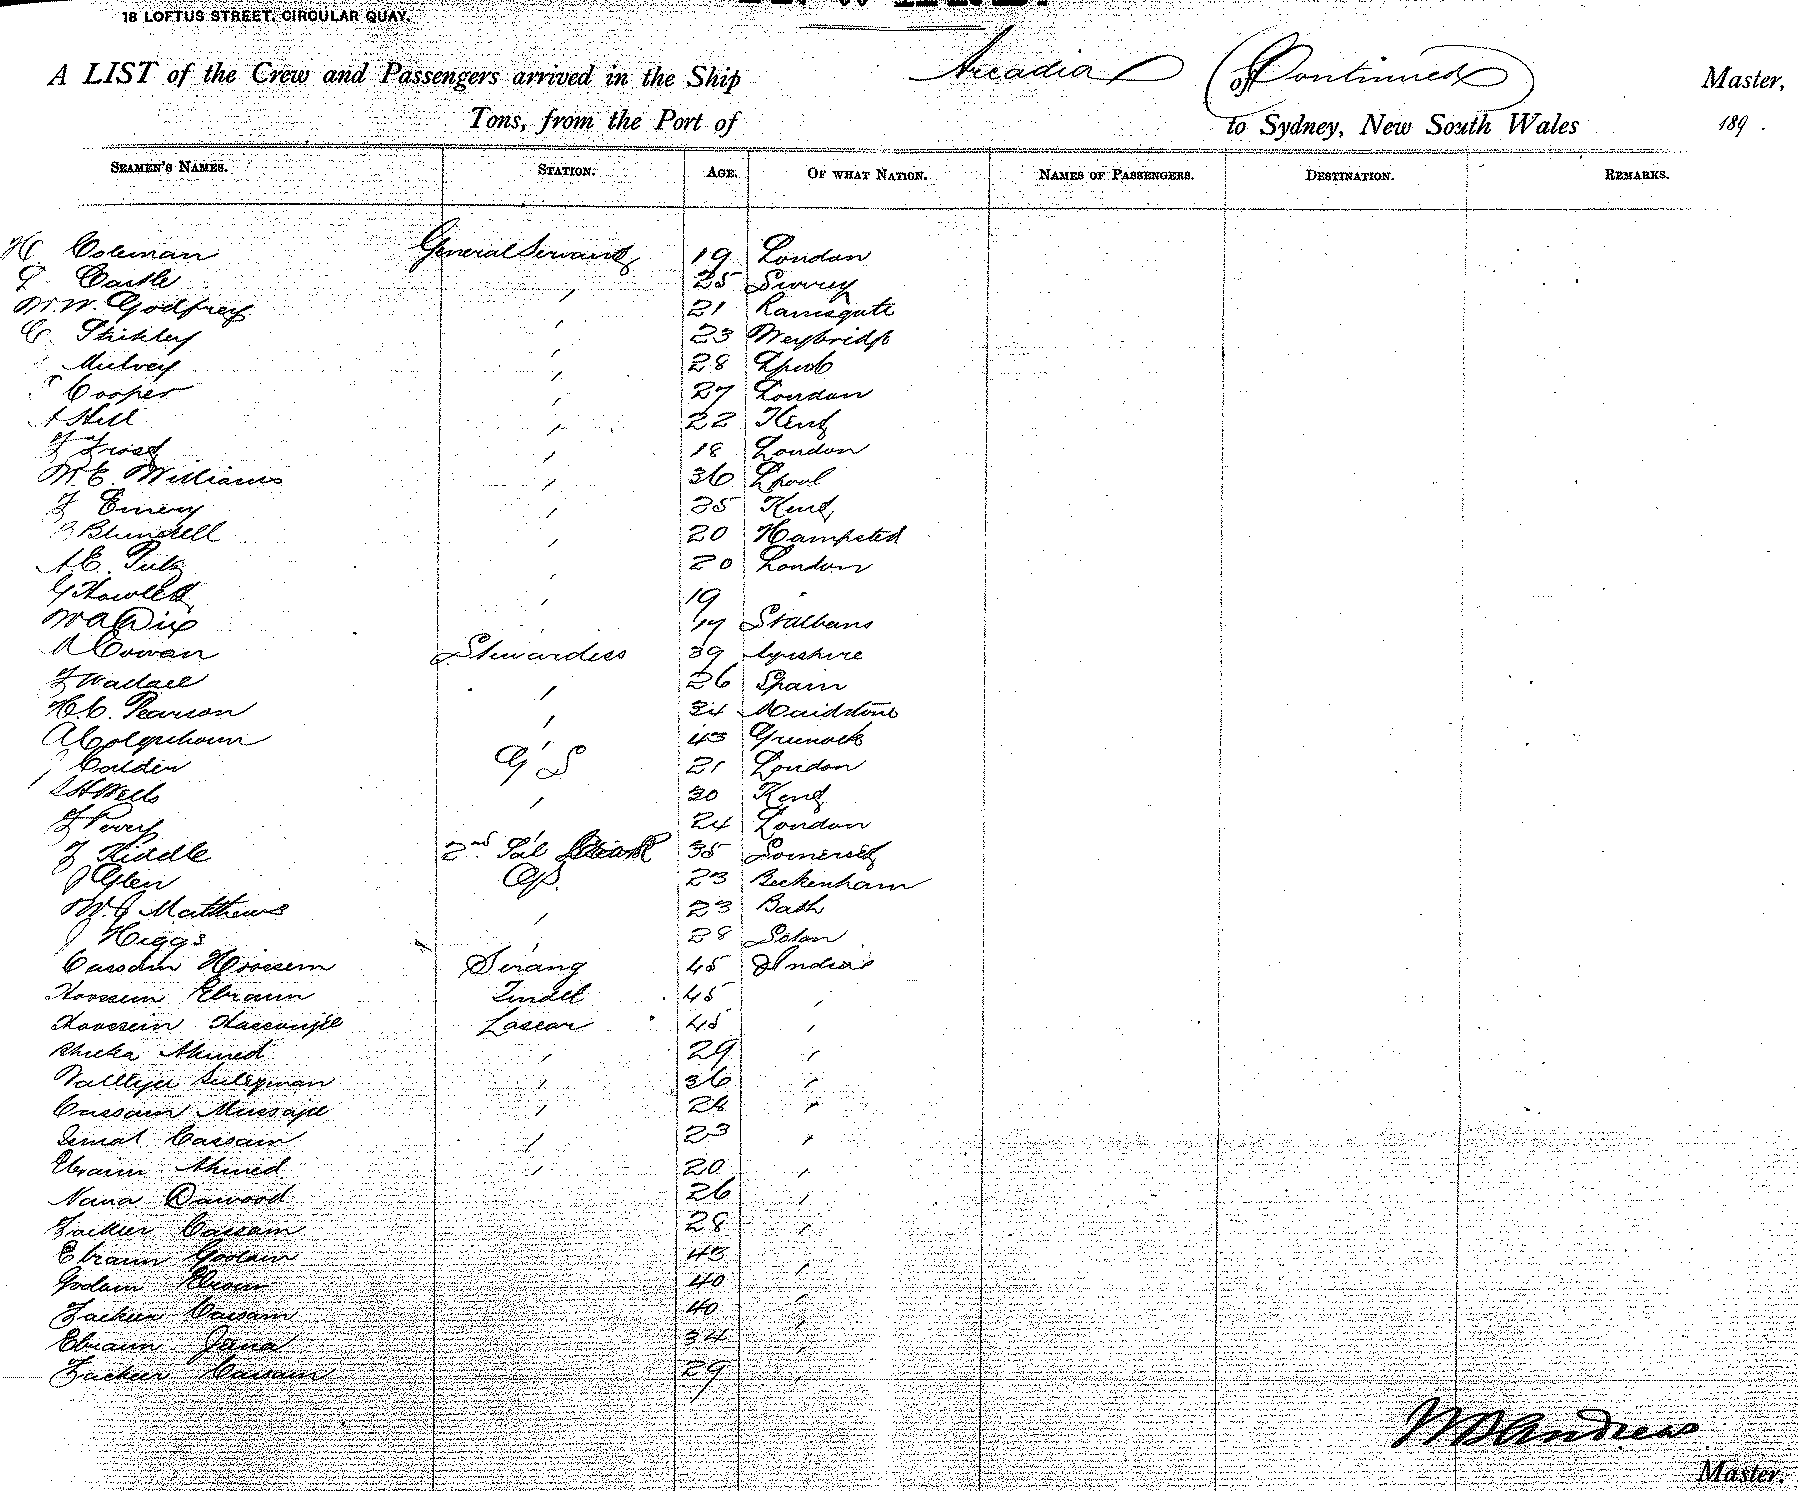 18 LOFTUS STREET, CIRCULAR QUAY.
A LIST of the Crew and Passengers arrived in the Ship Arcadia (Continued) of Master,
Tons, from the Port of to Sydney, New South Wales 189 .
SEAMEN'S NAMES. STATION. AGE. OF WHAT NATION. NAMES OF PASSENGERS. DESTINATION. REMARKS.
H. Coleman General Servant 19 London
Castle " 25 Surrey
W. W. Godfrey " 21 Ramsgate
C. Stickley " 23 Weybridge
Mulvey " 28 Lpool
Cooper " 27 London
A Hill " 22 Kent
F Frost " 18 London
W. E. Williams " 36 Lpool
F Emery " 35 Kent
J Blundell " 20 Hampsted
A. E. " 20 London
G Howlett " 19 "
W A Dix " 17 St Albans
Cowan Stewardess 39 Ayrshire
F Wallace " 26 Spain
H. C. Pearson " 34 Maidstone
A Colquhoun " 43 Greenock
J Calder G S 21 London
Wells " 30 Kent
F Povey " 24 London
F Riddle 2nd Sal 35 Somerset
J Glen GS. 23 Beckenham
W. J Matthews " 23 Bath
J Higgs " 28 Soton
Cassam Hoosein Serang 45 India
Hoosein Ebraim Tindel 45 "
Hoosein Lascar 45 "
Ahmed " 29 "
Suleyman " 36 "
Cassam " "
Cassam " 23 "
Ebraim Ahmed " 20 "
Nana Dawood 26 "
Fackeer Cassam 28 "
Ebraim Goolam "
Goolam Ebraim 40 "
Fackeer Cassam 40 "
Ebraim 34 "
Fackeer Cassam 29 "
Andrews
Master.